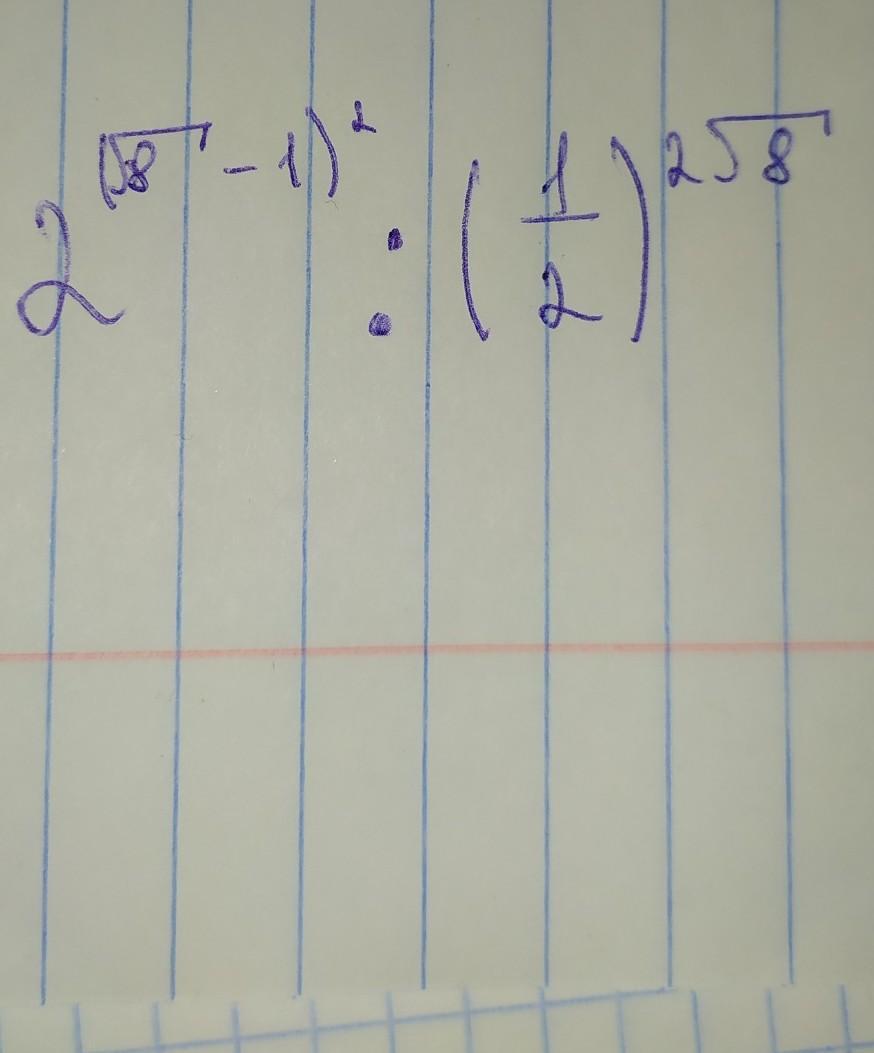 2^(√8 - 1)^2 : (1/2)^2√8